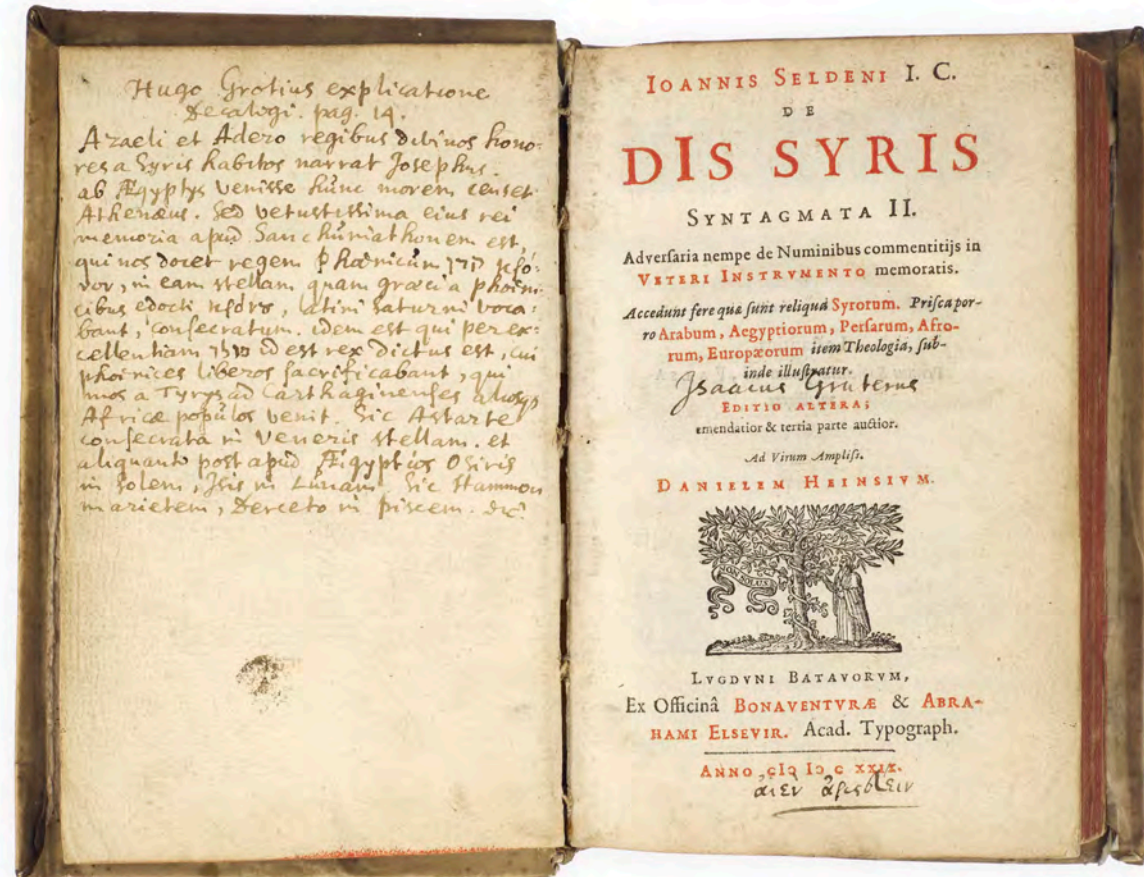 Hugo Grotius explicatione
Decalogi. pag. 14.
Azaeli et Adero regibus divinos hono-
res a Syris habitos narrat Josephus.
ab Ægyptys venisse hunc morem censet
Athenæus. Sed vetustissima eius rei
memoria apud Sanchuniathonem est,
qui nos docet regem Phœnicum
in eam stellam quam græci a phœni-
cibus edocti latini Saturni voca-
bant, consecratum. idem est qui per ex-
cellentiam id est rex dictus est, cui
phœnices liberos sacrificabant, qui
mos a Tyrys ad Carthaginenses aliosqȝ
Africæ populos venit. Sic Astarte
consecrata in Veneris stellam. et
aliquanto post apud Ægyptios Osiris
in solem, Isis in Lunam. Sic Hammon
in arietem, Derceto in piscem. &c.
IOANNIS SELDENI I. C.
DE
DIS SYRIS
SYNTAGMATA II.
Adversaria nempe de Numinibus commentitijs in
VETERI INSTRVMENTO memoratis.
Accedunt fere quæ sunt reliqua Syrorum. Prisca por-
ro Arabum, Aegyptiorum, Persarum, Afro-
rum, Europæorum item Theologia, sub-
inde illustratur.
Isaacus Gruterus
EDITIO ALTERA;
emendatior & tertia parte auctior.
Ad Virum Ampliss.
DANIELEM HEINSIVM.
NON SOLUS
LVGDVNI BATAVORVM,
Ex Officinâ BONAVENTVRÆ & ABRA-
HAMI ELSEVIR. Acad. Typograph.
ANNO cIↄ Iↄ C XXIX.
αιὲν ἀριστεύειν